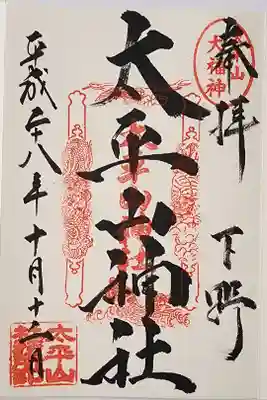 奉拝
下野
太平山
大福神
太平山神社
平成二十八年十月十二日
太平山